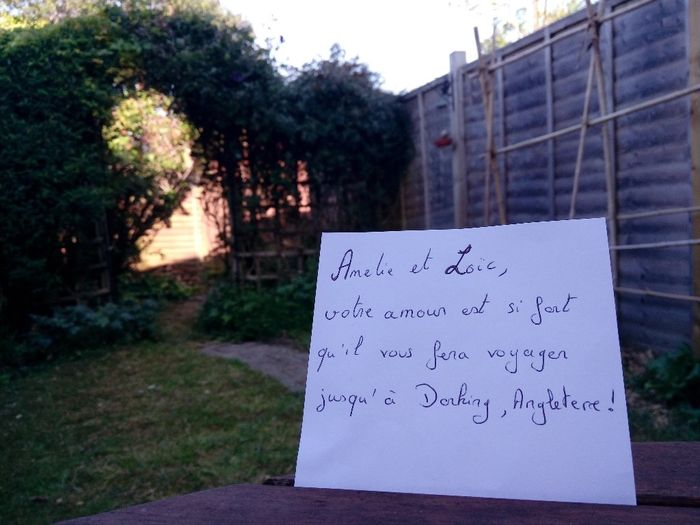 Amelie et Loïc,
votre amour est si fort
qu'il vous fera voyager
jusqu'à Dorking, Angleterre!